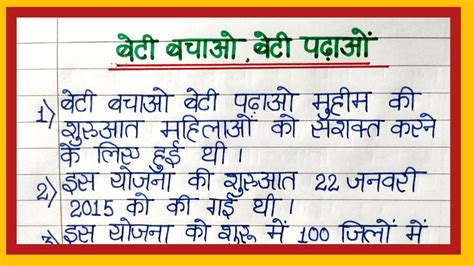 बेटी बचाओ, बेटी पढ़ाओं
1) बेटी बचाओ बेटी पढ़ाओ मुहीम की
शुरुआत महिलाओं को सशक्त करने
के लिए हुई थी ।
2) इस योजना की शुरुआत 22 जनवरी
2015 को की गई थी ।
3) इस योजना को शुरू में 100 जिलों में